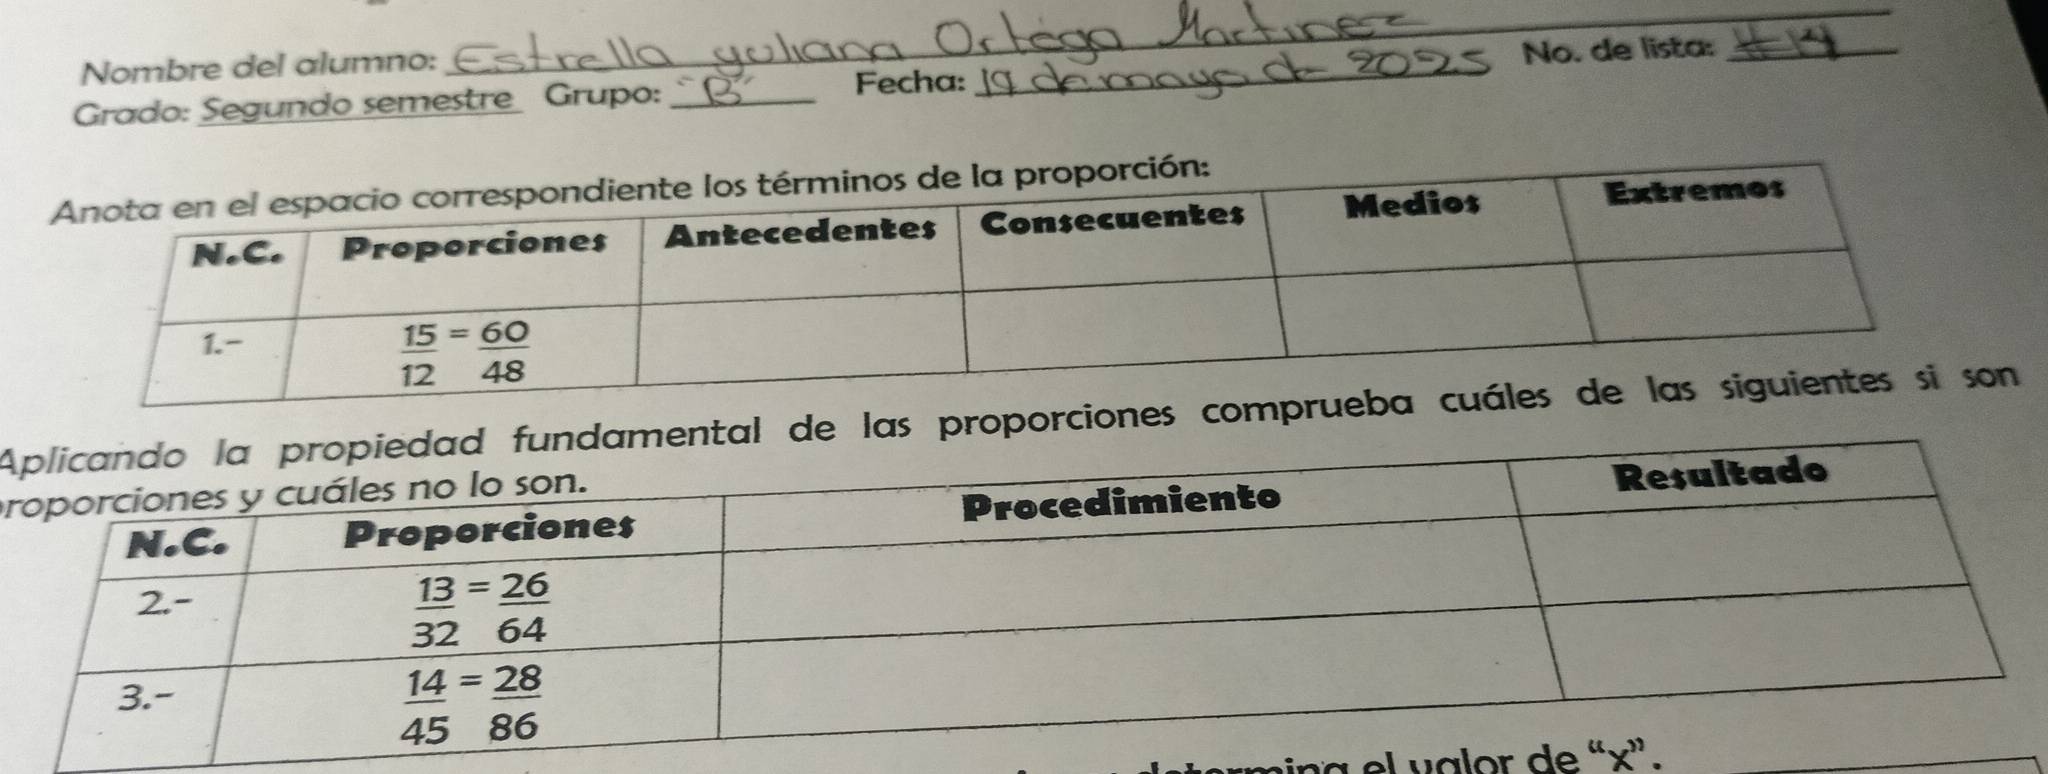 Nombre del alumno: Estrella yuliana Ortega Martinez No. de lista: #14
Grado: Segundo semestre Grupo: "B" Fecha: 19 de mayo de 2025
Anota en el espacio correspondiente los términos de la proporción:
N.C. Proporciones Antecedentes Consecuentes Medios Extremos
1.- 15 = 60
12 48
Aplicando la propiedad fundamental de las proporciones comprueba cuáles de las siguientes si son
proporciones y cuáles no lo son.
N.C. Proporciones Procedimiento Resultado
2.- 13 = 26
32 64
3.- 14 = 28
45 86
determina el valor de “x”.